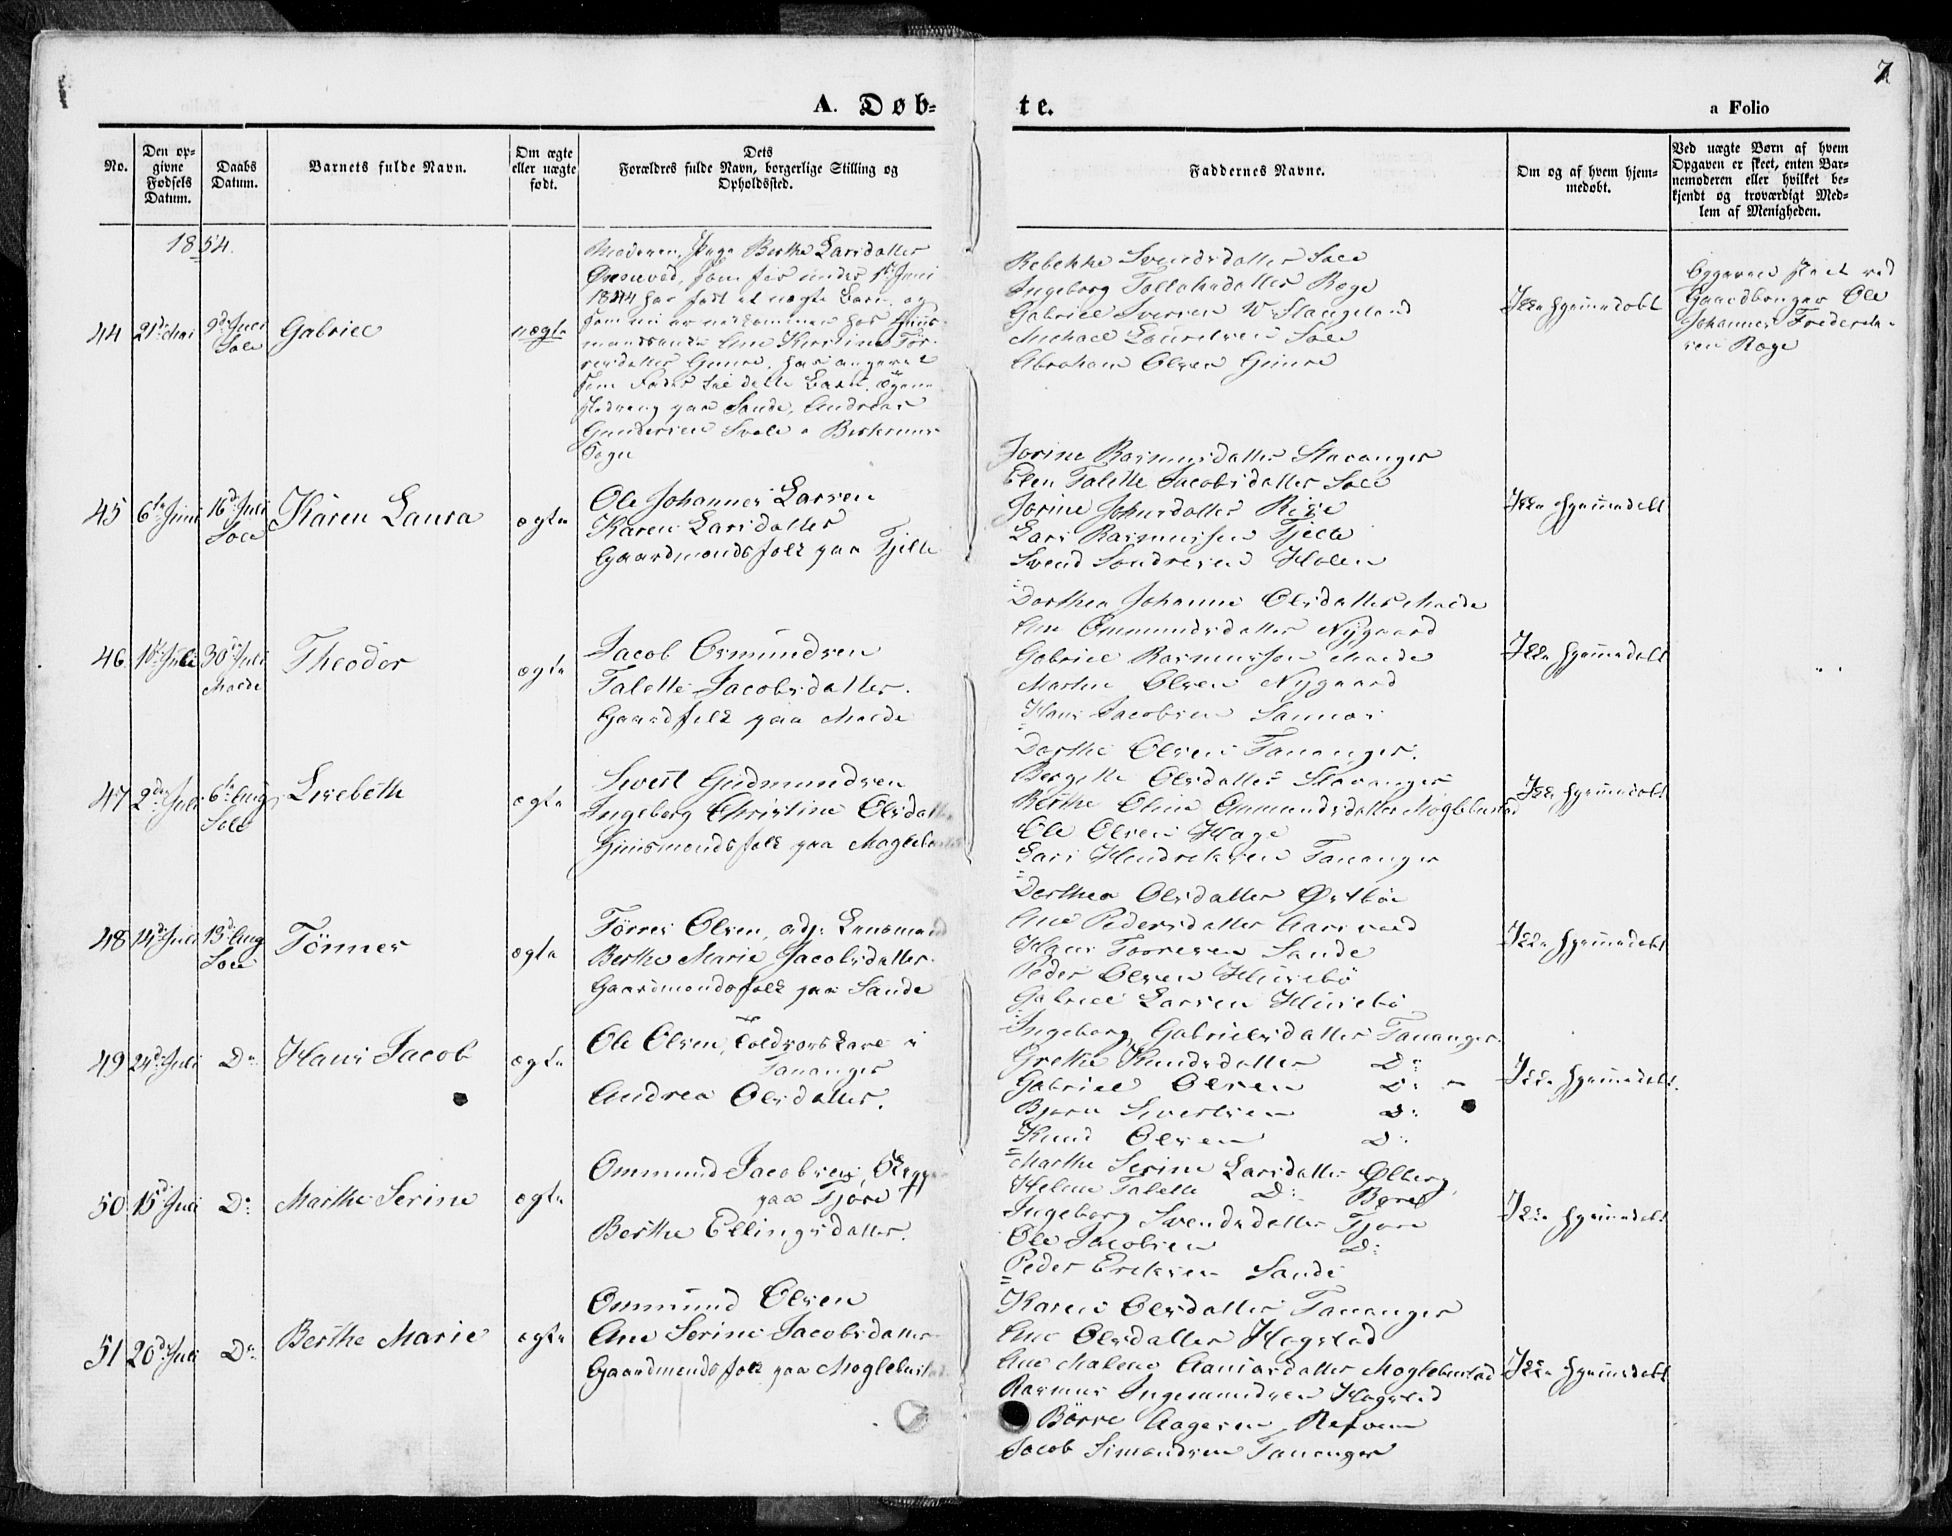 7
A. Døb-
te.
a Folio
No.
Den op-
givne
Fødsels
Datum.
Daabs
Datum.
Barnets fulde Navn.
Om ægte
eller uægte
født.
Dets
Forældres fulde Navn, borgerlige Stilling og
Opholdssted.
Faddernes Navne.
Om og af hvem hjem-
medøbt.
Ved uægte Børn af hvem
Opgaven er skeet, enten Bar-
nemoderen eller hvilket be-
kjendt og troværdigt Med-
lem af Menigheden.
1854.
44
Gabriel
uægte
Moderen, Pige Berthe Larsdatter
som før under 1ste Juni
1844 har født et uægte Barn, og
som nu er nedkommen hos Huus-
Ane Kirstine Tor-
har angivet
som Fader til dette Barn,
paa Sande, Andreas
Gundersen
Sogn
Rebekke Svendsdatter Sole
Ingeborg Tollaksdatter Røge
Gabriel Iversen W. Stangeland
Michael Lauritsen Sole
Abraham Olsen Gimre
Ikke hjemmedøbt
Opgaven skeet ved
Gaardbruger Ole
Johannes Frederik-
sen Røge
45
6te Juni
16de Juli
Sole
Karen Laura
ægte
Ole Johannes Larsen
Karen Larsdatter
Gaardmandsfolk paa Tjelte
Jorine Rasmusdatter Stavanger
Elen Talette Jacobsdatter Sole
Jorine Johnsdatter Rige
Lars Rasmussen Tjelte
Svend Sondresen Holen
Ikke hjemmedøbt
46
1ste Juli
30te Juli
Malde
Theodor
ægte
Jacob Osmundsen
Talette Jacobsdatter.
Gaardfolk paa Malde
Dorthea Johanne Olsdatter Malde
Ane Ommundsdatter Nygaard
Gabriel Rasmussen Malde
Martin Olsen Nygaard
Hans Jacobsen
Ikke hjemmedøbt
47
2den Juli
6te Aug
Sole
Lisebeth
ægte
Sivert Gudmundsen
Ingeborg Christine Olsdatter
Huusmandsfolk paa Mogleb
Dorthe Olsen Tananger.
Bergette Olsdatter Stavanger
Berthe Oline Ommundsdatter Moglebustad
Ole Olsen Hage
Lars Hendriksen Tananger
Ikke hjemmedøbt
48
14de Juli
13de Aug
Sole
Tönnes
ægte
Törres Olsen, adj: Lensmand
Berthe Marie Jacobsdatter.
Gaardmandsfolk paa Sande
Dorthea Olsdatter Østbø
Ane Pedersdatter
Hans Torresen Sande
Peder Olsen Husebø
Gabriel Larsen Husebø
Ikke hjemmedøbt
49
24de Juli
Do
Hans Jacob
ægte
Ole Olsen, Toldroerskarl i
Tananger
Andrea Olsdatter.
Ingeborg Gabrielsdatter Tananger.
Grethe Knudsdatter Do
Gabriel Olsen Do
Bjørn Sivertsen Do
Knud Olsen Do
Ikke hjemmedøbt.
50
15de Juli
Do
Marthe Serine
ægte
Ommund Jacobsen,
paa Tjore
Berthe Ellingsdatter.
Marthe Serine Larsdatter Ølberg.
Helene Talette Do
Ingeborg Svendsdatter Tjore
Ole Jacobsen Do
Peder Eriksen Sande
Ikke hjemmedøbt
51
20de Juli
Do
Berthe Marie
ægte
Ommund Olsen
Ane Serine Jacobsdatter
Gaardmandsfolk paa Moglebustad
Karen Olsdatter Tananger
Ane Olsdatter Hogstad
Ane Malene Aaniasdatter Moglebustad
Rasmus Ingemundsen Hogstad
Börre Aagesen
Jacob Simondsen Tananger
Ikke hjemmedøbt